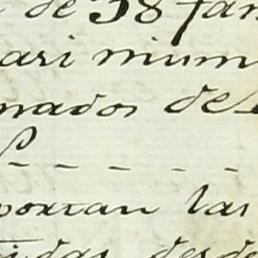 de 38 fan
ari mium
nados de
portan las
idas desde